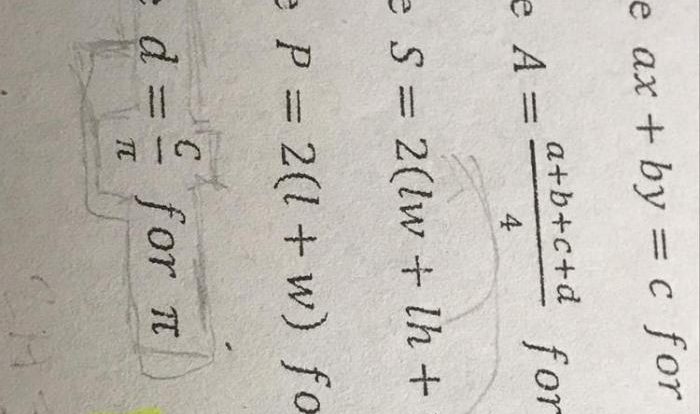 e ax + by = c for
e A = \frac{a+b+c+d}{4} for
e S = 2(lw + lh +
e P = 2(l + w) fo
e d = \frac{C}{π} for π